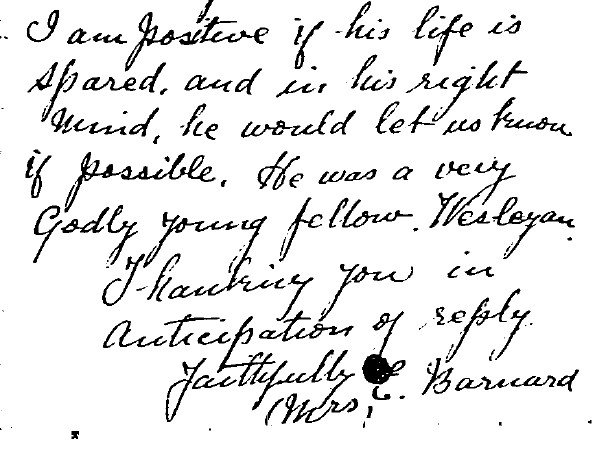 I am positive if his life is
spared, and in his right
mind, he would let us know
if possible. He was a very
Godly young fellow. Wesleyan.
Thanking you in
Anticipation of reply
Faithfully Barnard
(Mrs)